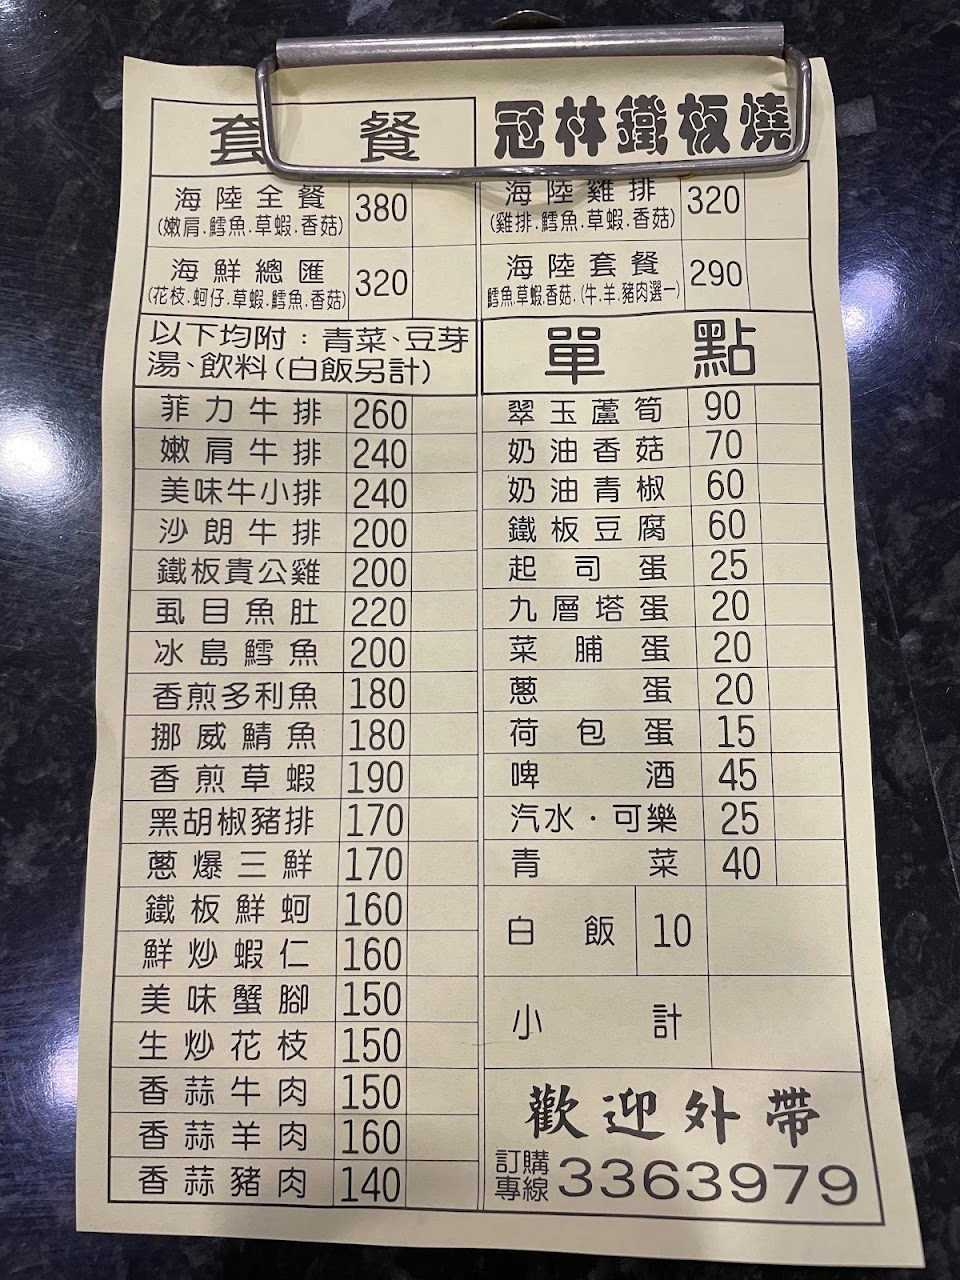 套餐
海陸全餐 380
(嫩肩.鱈魚.草蝦.香菇)
海鮮總匯 320
(花枝.蚵仔.草蝦.鱈魚.香菇)
以下均附：青菜、豆芽
湯、飲料(白飯另計)
菲力牛排 260
嫩肩牛排 240
美味牛小排 240
沙朗牛排 200
鐵板貴公雞 200
虱目魚肚 220
冰島鱈魚 200
香煎多利魚 180
挪威鯖魚 180
香煎草蝦 190
黑胡椒豬排 170
蔥爆三鮮 170
鐵板鮮蚵 160
鮮炒蝦仁 160
美味蟹腳 150
生炒花枝 150
香蒜牛肉 150
香蒜羊肉 160
香蒜豬肉 140
冠林鐵板燒
海陸雞排 320
(雞排.鱈魚.草蝦.香菇)
海陸套餐 290
鱈魚.草蝦.香菇.(牛.羊.豬肉選一)
單點
翠玉蘆筍 90
奶油香菇 70
奶油青椒 60
鐵板豆腐 60
起司蛋 25
九層塔蛋 20
菜脯蛋 20
蔥蛋 20
荷包蛋 15
啤酒 45
汽水・可樂 25
青菜 40
白飯 10
小計
歡迎外帶
訂購
專線 3363979